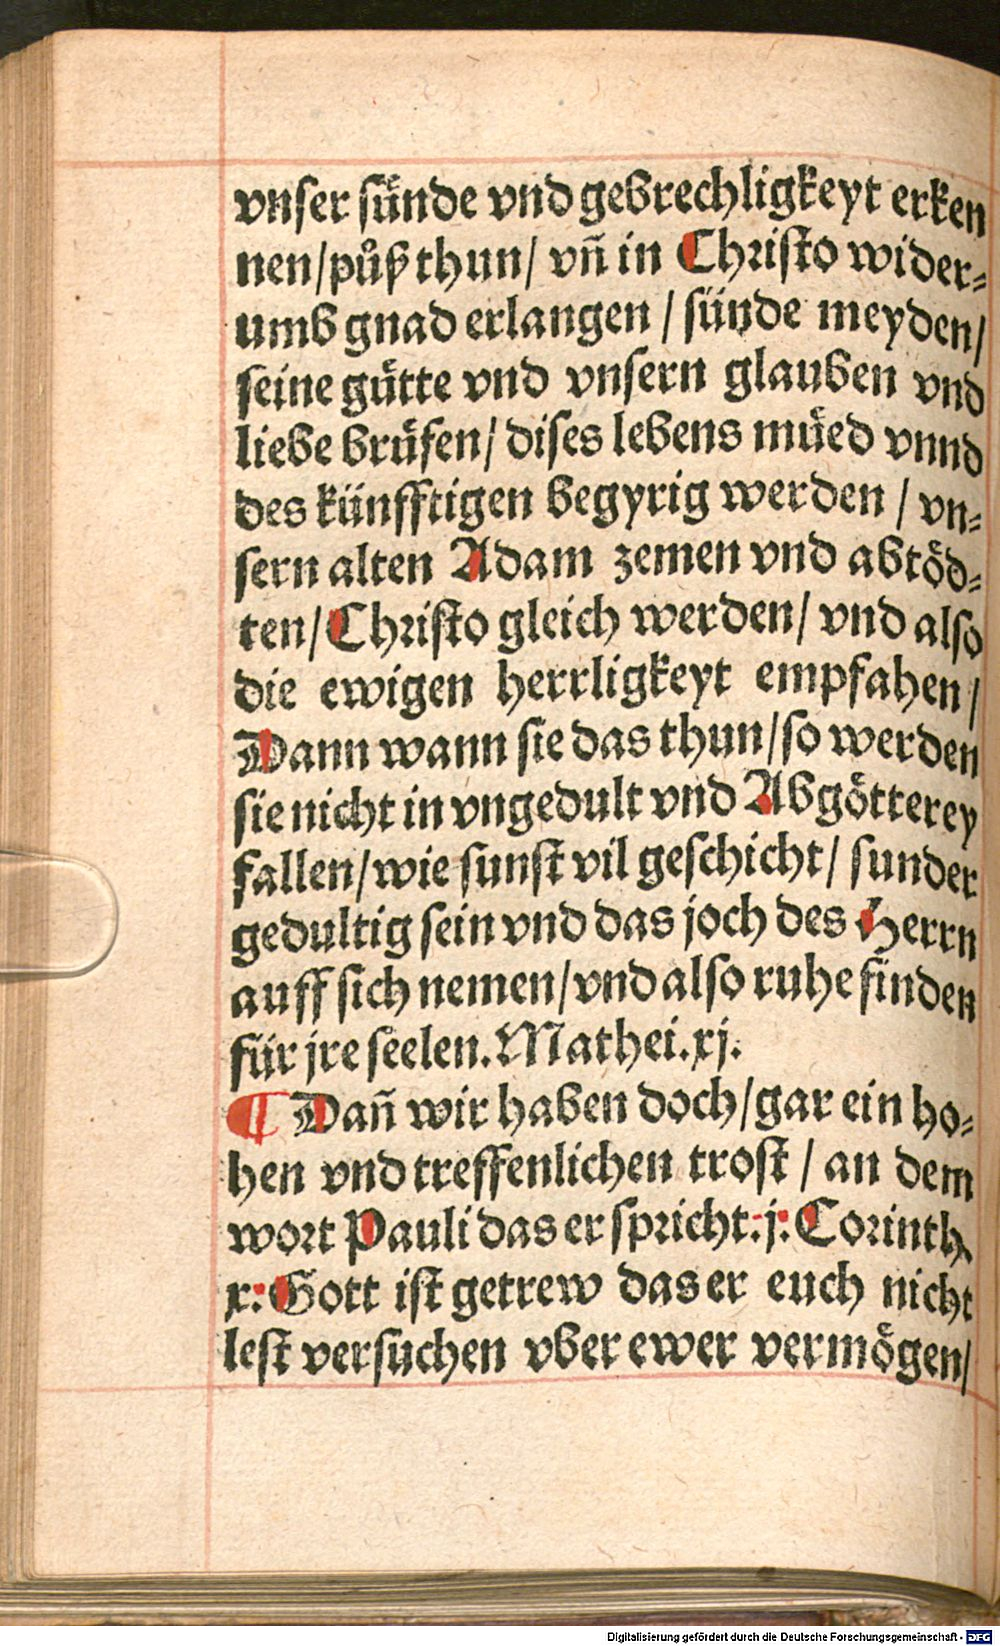 vnser sünde vnd gebrechligkeyt erken
nen/ půß thun/ vñ in Christo wider⸗
umb gnad erlangen / sünde meyden/
seine gütte vnd vnsern glauben vnd
liebe brüfen/ dises lebens müed vnnd
des künfftigen begyrig werden / vn⸗
sern alten Adam zemen vnd abtöd⸗
ten/ Christo gleich werden/ vnd also
die ewigen herrligkeyt empfahen/
Dann wann sie das thun/ so werden
sie nicht in vngedult vnd Abgötterey
fallen/ wie sunst vil geschicht/ sunder
gedultig sein vnd das joch des Herrn
auff sich nemen/ vnd also ruhe finden
für jre seelen. Mathei. xj.
¶ Dañ wir haben doch/ gar ein ho⸗
hen vnd treffenlichen trost / an dem
wort Pauli das er spricht. j. Corinth.
x. Gott ist getrew das er euch nicht
lest versuchen vber ewer vermögen/
Digitalisierung gefördert durch die Deutsche Forschungsgemeinschaft - DFG